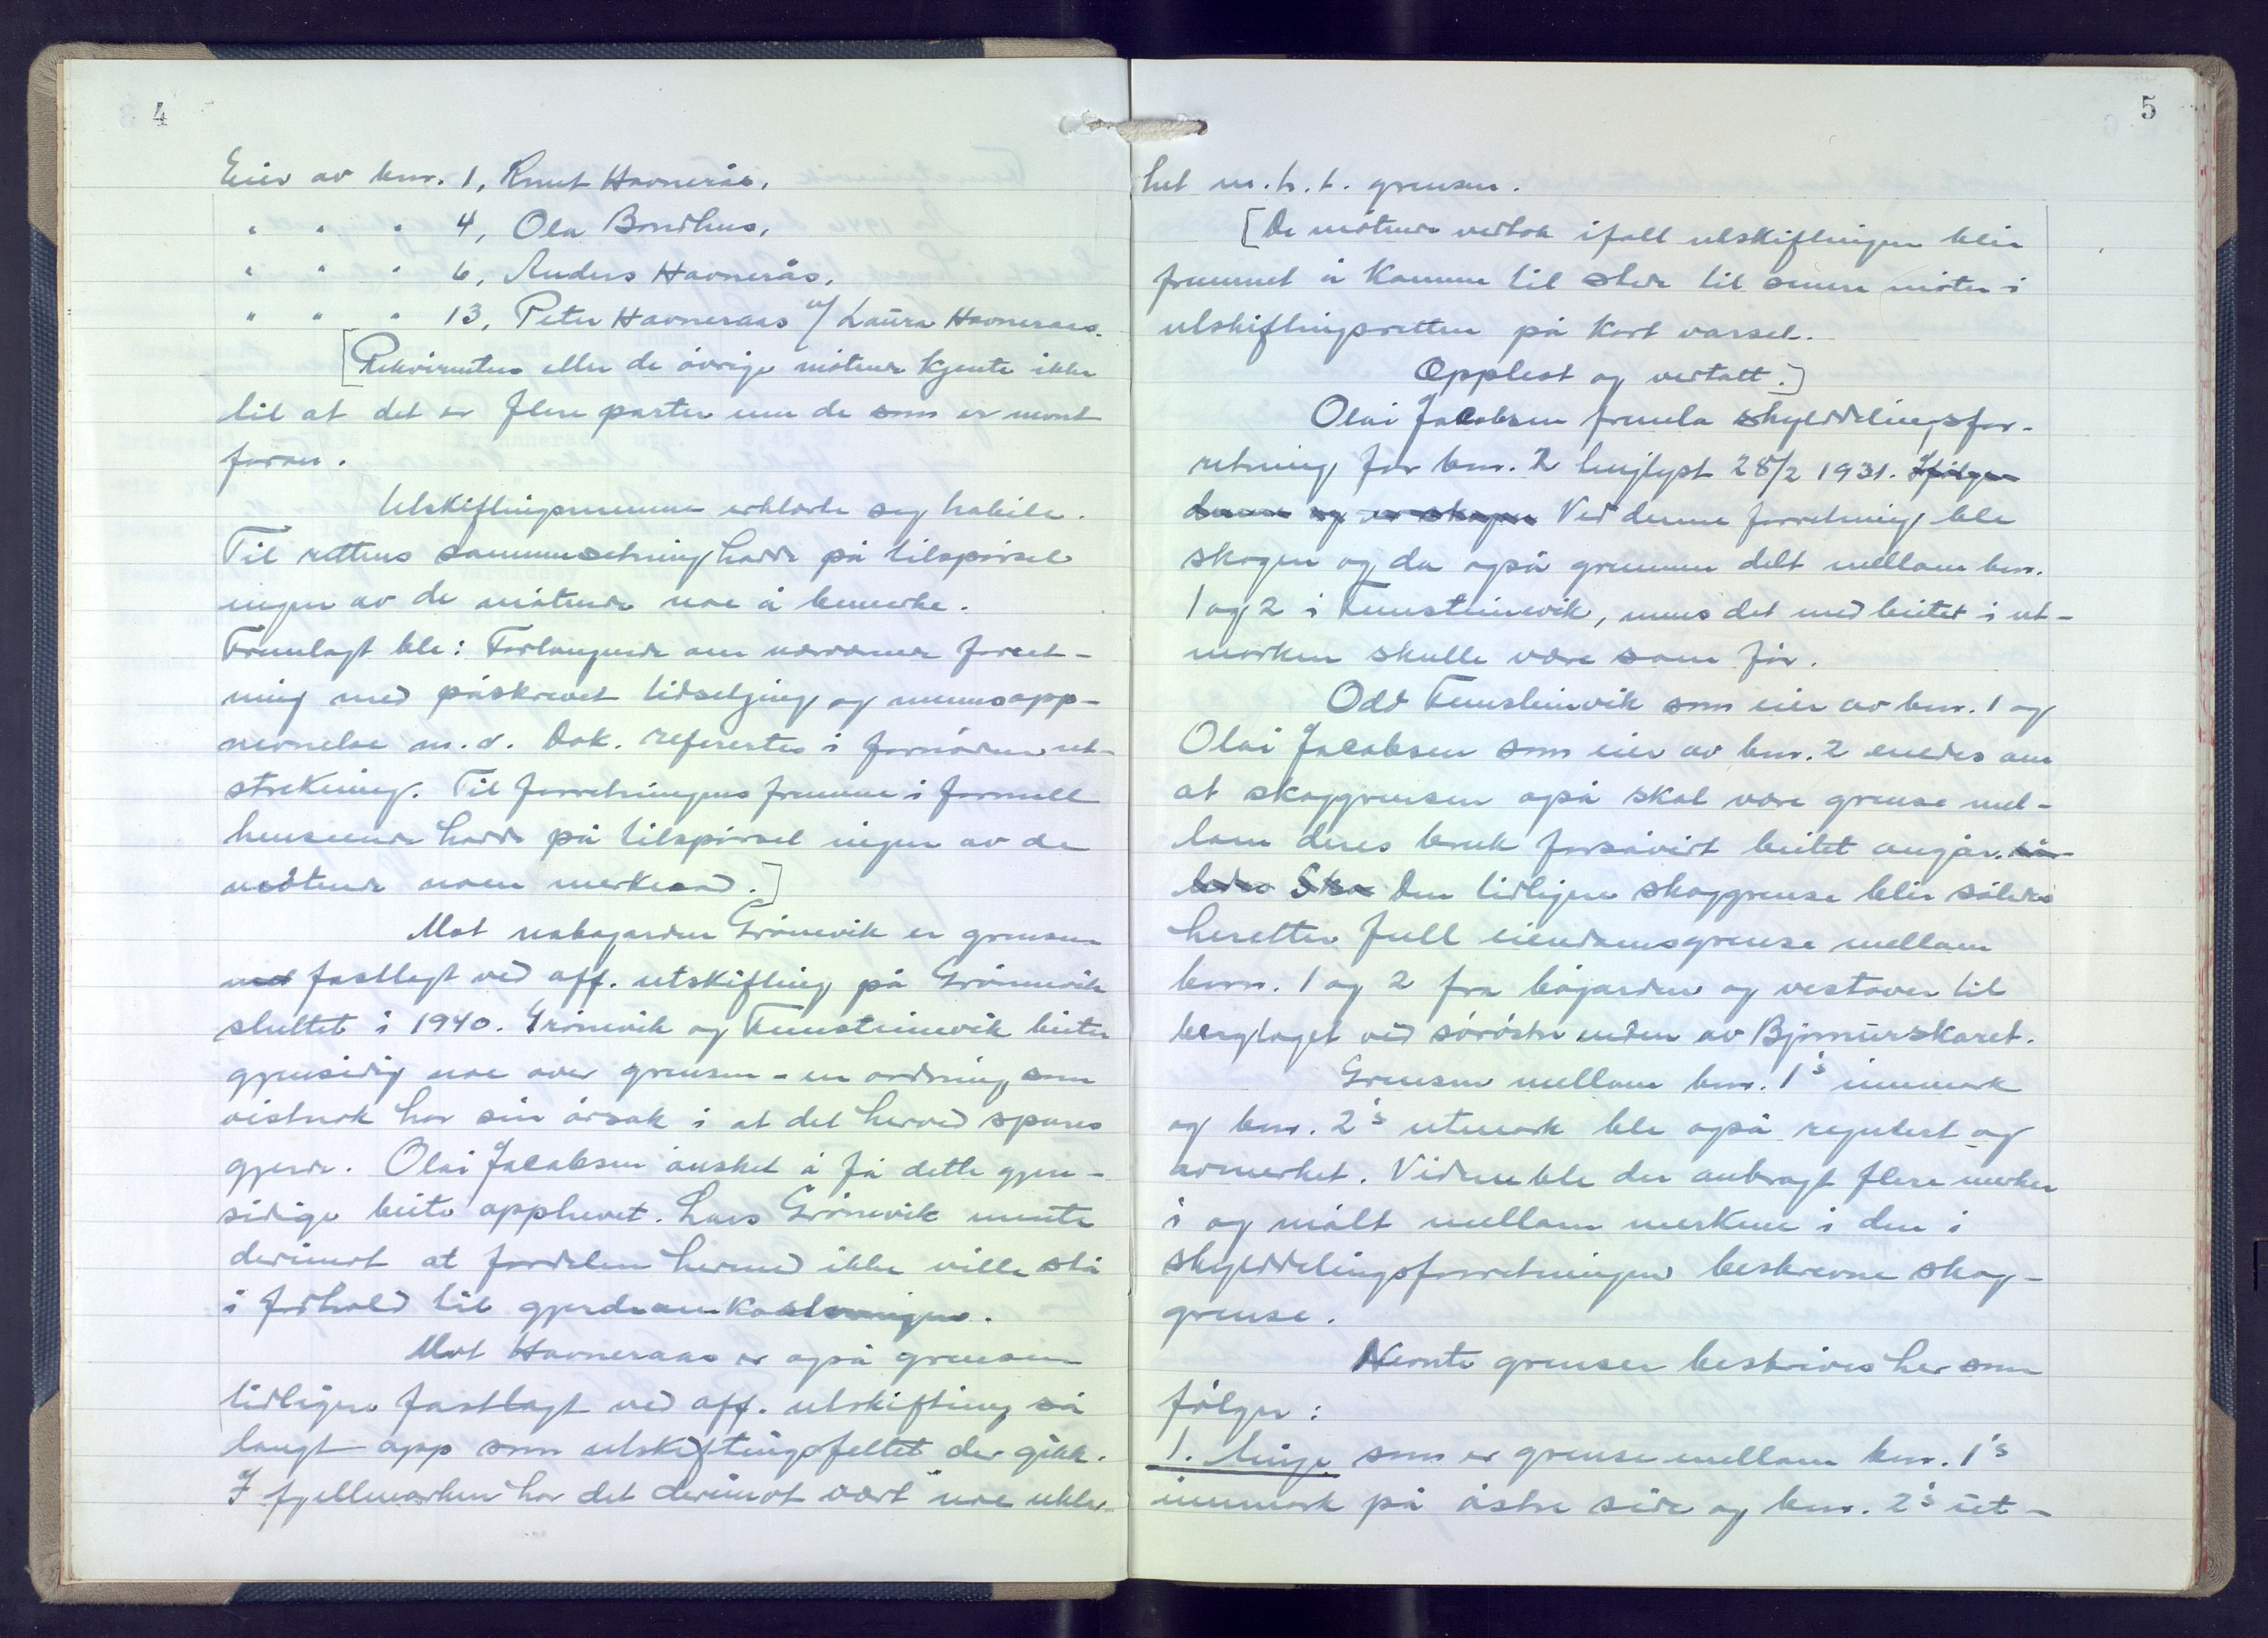 4
Eier av bnr. 1, Knut Havnerås,
" " " 4, Ola Bondhus,
" " " 6, Anders Havnerås,
" " " 13, Peter Havneraas v/ Laura Havneraas.
[Rekvirenten eller de øvrige møtende kjente ikke
til at det er flere parter enn de som er nevnt
foran.
Utskiftningsmennene erklærte seg habile.
Til rettens sammensetning hadde på tilspørsel
ingen av de møtende noe å bemerke.
Fremlagt ble: Forlangende om nærværende forret-
ning med påskrevet tidsetjing og mennsopp-
nevnelse m.v. Dok. referertes i fornøden ut-
strekning. Til forretningens fremme i formell
henseende hadde på tilspørsel ingen av de
møtende noen merknad.]
Mot nabogarden Grönevik er grensen
ved fastlagt ved off. utskifting på Grönnevik
sluttet i 1940. Grönevik og Femsteinevik beiter
gjensidig noe over grensen - en ordning som
vistnok har sin årsak i at det herved spares
gjerde. Olai Jacobsen ønsket å få dette gjen-
sidige beite opphevet. Lars Grönevik mente
derimot at fordelen hermed ikke ville stå
i forhold til gjerdeomkostningen.
Mot Havneraas er også grensen
tidligere fastlagt ved off. utskifting så
langt opp som utskiftingsfeltet der gikk.
I fjellmarken har det derimot vært noe uklar-
5
het m.h.t. grensen.
[De møtende vedtok ifall utskiftningen blir
fremmet å komme til stede til senere møter i
utskiftningsretten på kort varsel.
Opplest og vedtatt.]
Olai Jacobsen fremla skylddelingsfor-
retning for bnr. 2 tinglyst 28/2 1931. Ifølge
denne og er skogen Ved denne forretning ble
skogen og da også grunnen delt mellom bnr.
1 og 2 i Femsteinevik, mens det med beitet i ut-
marken skulle være som før.
Odd Femsteinvik som eier av bnr. 1 og
Olai Jacobsen som eier av bnr. 2 enedes om
at skoggrensen også skal være grense mel-
lom deres bruk forsåvidt beitet angår. så-
ledes Sko Den tidligere skoggrense blir således
heretter full eiendomsgrense mellom
bnrn. 1 og 2 fra bøgarden og vestover til
berglaget ved sørøstre enden av Bjørnurskaret.
Grensen mellom bnr. 1's innmark
og bnr. 2's utmark ble også regulert og
avmerket. Videre ble der anbragt flere merker
i og målt mellom merkene i den i
skylddelingsforretningen beskrevne skog-
grense.
Nevnte grenser beskrives her som
følger:
1. linje som er grense mellom bnr. 1's
innmark på østre side og bnr. 2's ut-